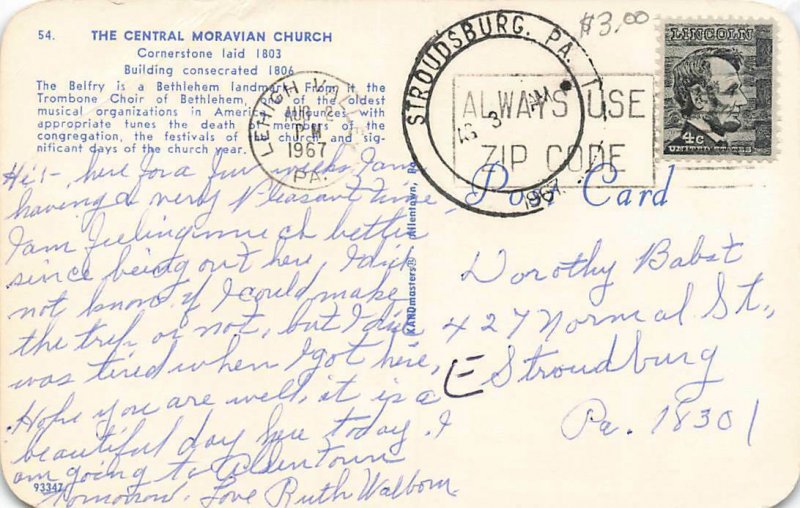 $3.00
54. THE CENTRAL MORAVIAN CHURCH
Cornerstone laid 1803
Building consecrated 1806
The Belfry is a Bethlehem landmark. From it the
Trombone Choir of Bethlehem, of the oldest
musical organizations in America, announces with
appropriate tunes the death of members of the
congregation, the festivals of the church and sig-
nificant days of the church year.
LEHIGH VALLEY
AUG 2
PM
1967
PA
STROUDSBURG. PA.
3
AM
1967
ALWAYS USE
ZIP CODE
LINCOLN
4¢
UNITED STATES
Post Card
Hi:- here for a few weeks I am
having a very Pleasant time,
I am feeling much better
since being out here, I did
not know if I could make
the trip or not, but I did
was tired when I got here,
Hope you are well, it is a
beautiful day here today. I
am going to Allentown
tomorrow. Love Ruth Walborn.
KARDmasters® Allentown, Pa.
Dorothy Babst
427 Normal St.,
E Stroudburg
Pa. 18301
93347